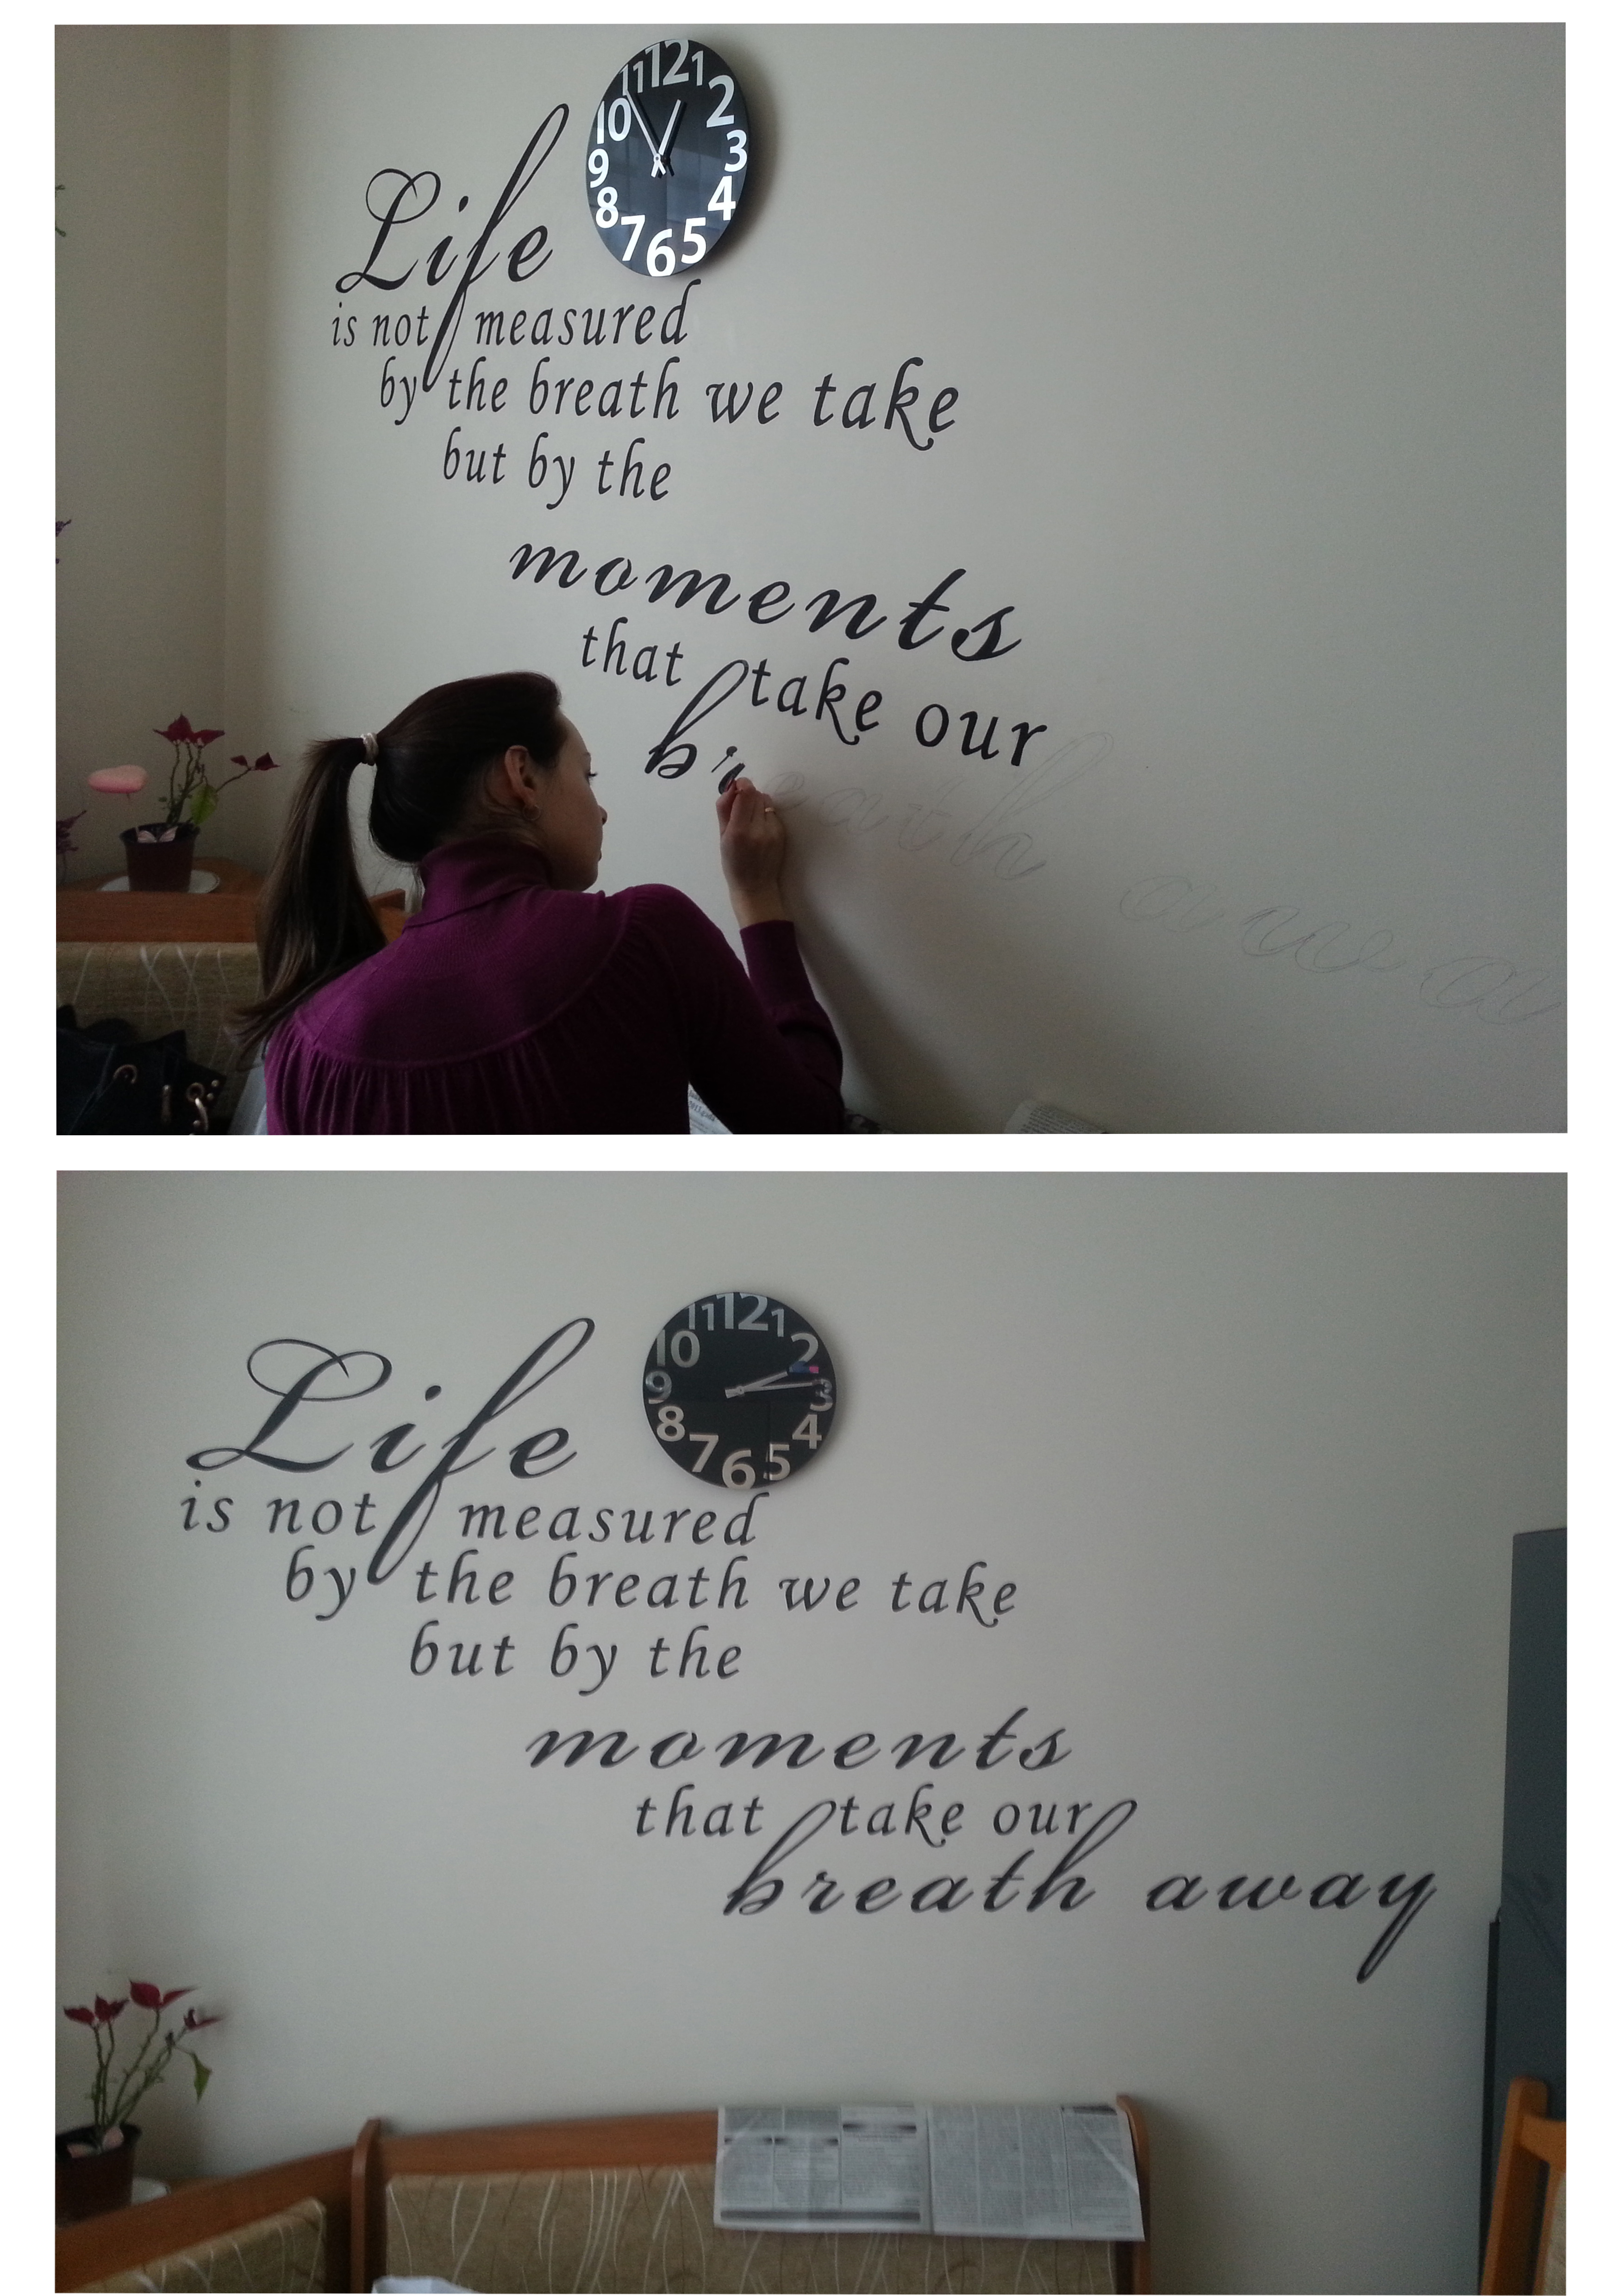 11 12 1
10 2
9 3
8 4
7 6 5
Life
is not measured
by the breath we take
but by the
moments
that take our
breath awa
11 12 1
10 2
9 3
8 4
7 6 5
Life
is not measured
by the breath we take
but by the
moments
that take our
breath away